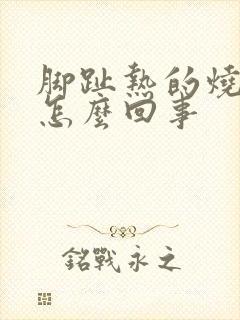 脚趾熱的燒
怎麼回事
銘戰永之